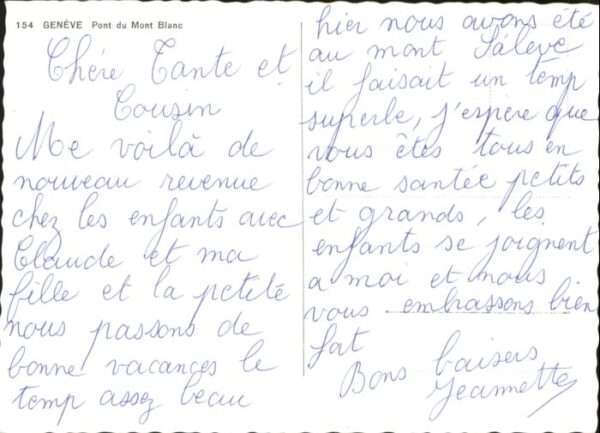 154 GENÈVE Pont du Mont Blanc
Chére Tante et
Cousin
Me voilà de
nouveau revenue
chez les enfants avec
Claude et ma
fille et la petite
nous passons de
bonne vacances le
temp assez beau
hier nous avons été
au mont Salève
il faisait un temp
superbe, j'espère que
vous êtes tous en
bonne santée petits
et grands, les
enfants se joignent
a moi et nous
vous embrassons bien
fort
Bons baisers
Jeannette